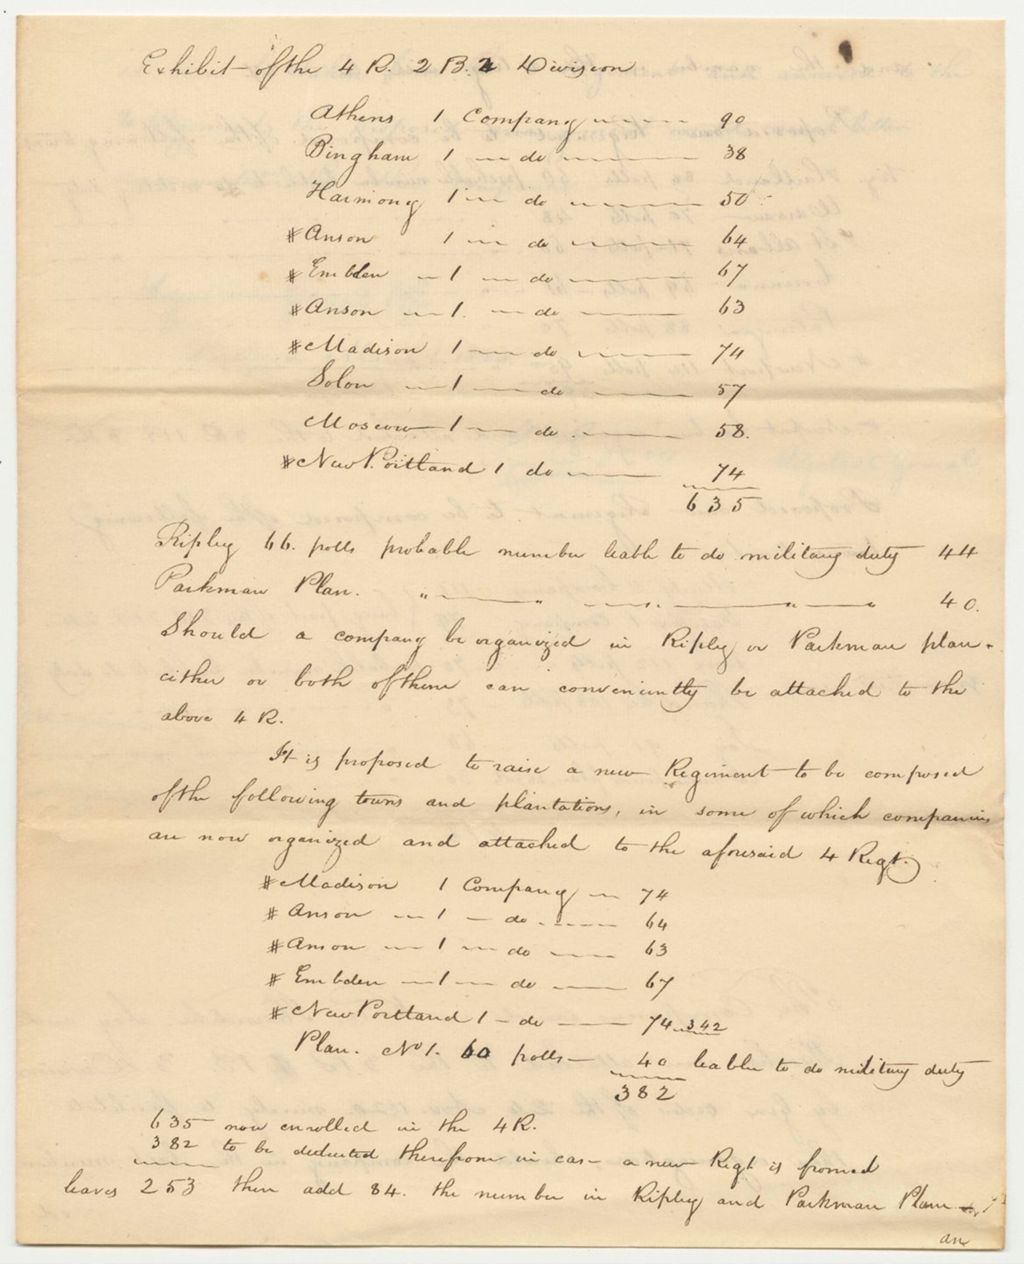 Exhibit of the 4 R. 2 B. 2 Division
Athens 1 Company 90
Bingham 1 do 38
Harmony 1 do 50
#Anson 1 do 64
#Embden 1 do 67
#Anson 1. do 63
#Madison 1 do 74
Solon 1 do 57
Moscow 1 do 58.
#New Portland 1 do 74
635
Ripley 66. polls probable number leable to do military duty 44
Parkman Plan. " " " " 40.
Should a company be organized in Ripley or Parkman plan.
either or both of them can conveniently be attached to the
above 4 R.
It is proposed to raise a new Regiment to be composed
of the following towns and plantations, in some of which companies
are now organized and attached to the aforesaid 4 Regt.
#Madison 1 Company 74
#Anson 1 do 64
#Anson 1 do 63
#Embden 1 do 67
#New Portland 1 do 74 342
Plan. No 1. 60 polls 40 leable to do military duty
382
635 now enrolled in the 4 R.
382 to be deducted therefrom in case a new Regt is fromed
leaves 253 then add 84. the number in Ripley and Parkman Plan
an